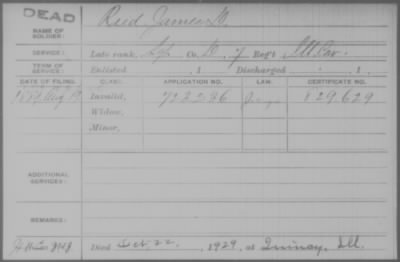 DEAD
NAME OF SOLDIER: Reed, James
SERVICE: Late rank, Co. 7 Reg't Ill. Cav.
TERM OF SERVICE: Enlisted , 1 Discharged , 1
DATE OF FILING. CLASS. APPLICATION NO. LAW. CERTIFICATE NO.
Aug 19 Invalid, 722286 829.629
Widow,
Minor,
ADDITIONAL SERVICES:
REMARKS:
Died Oct. 22, 1929, at Quincy, Ill.